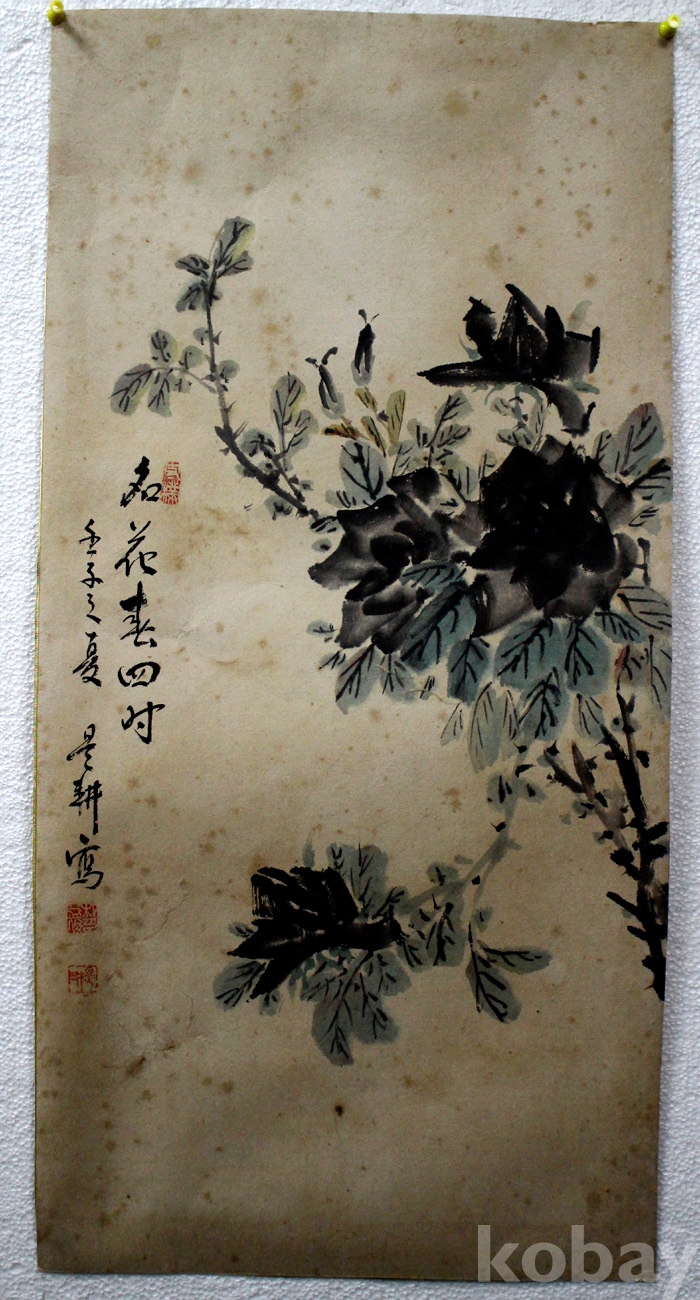 名花春四时
壬子之夏 是耕寫
kobay